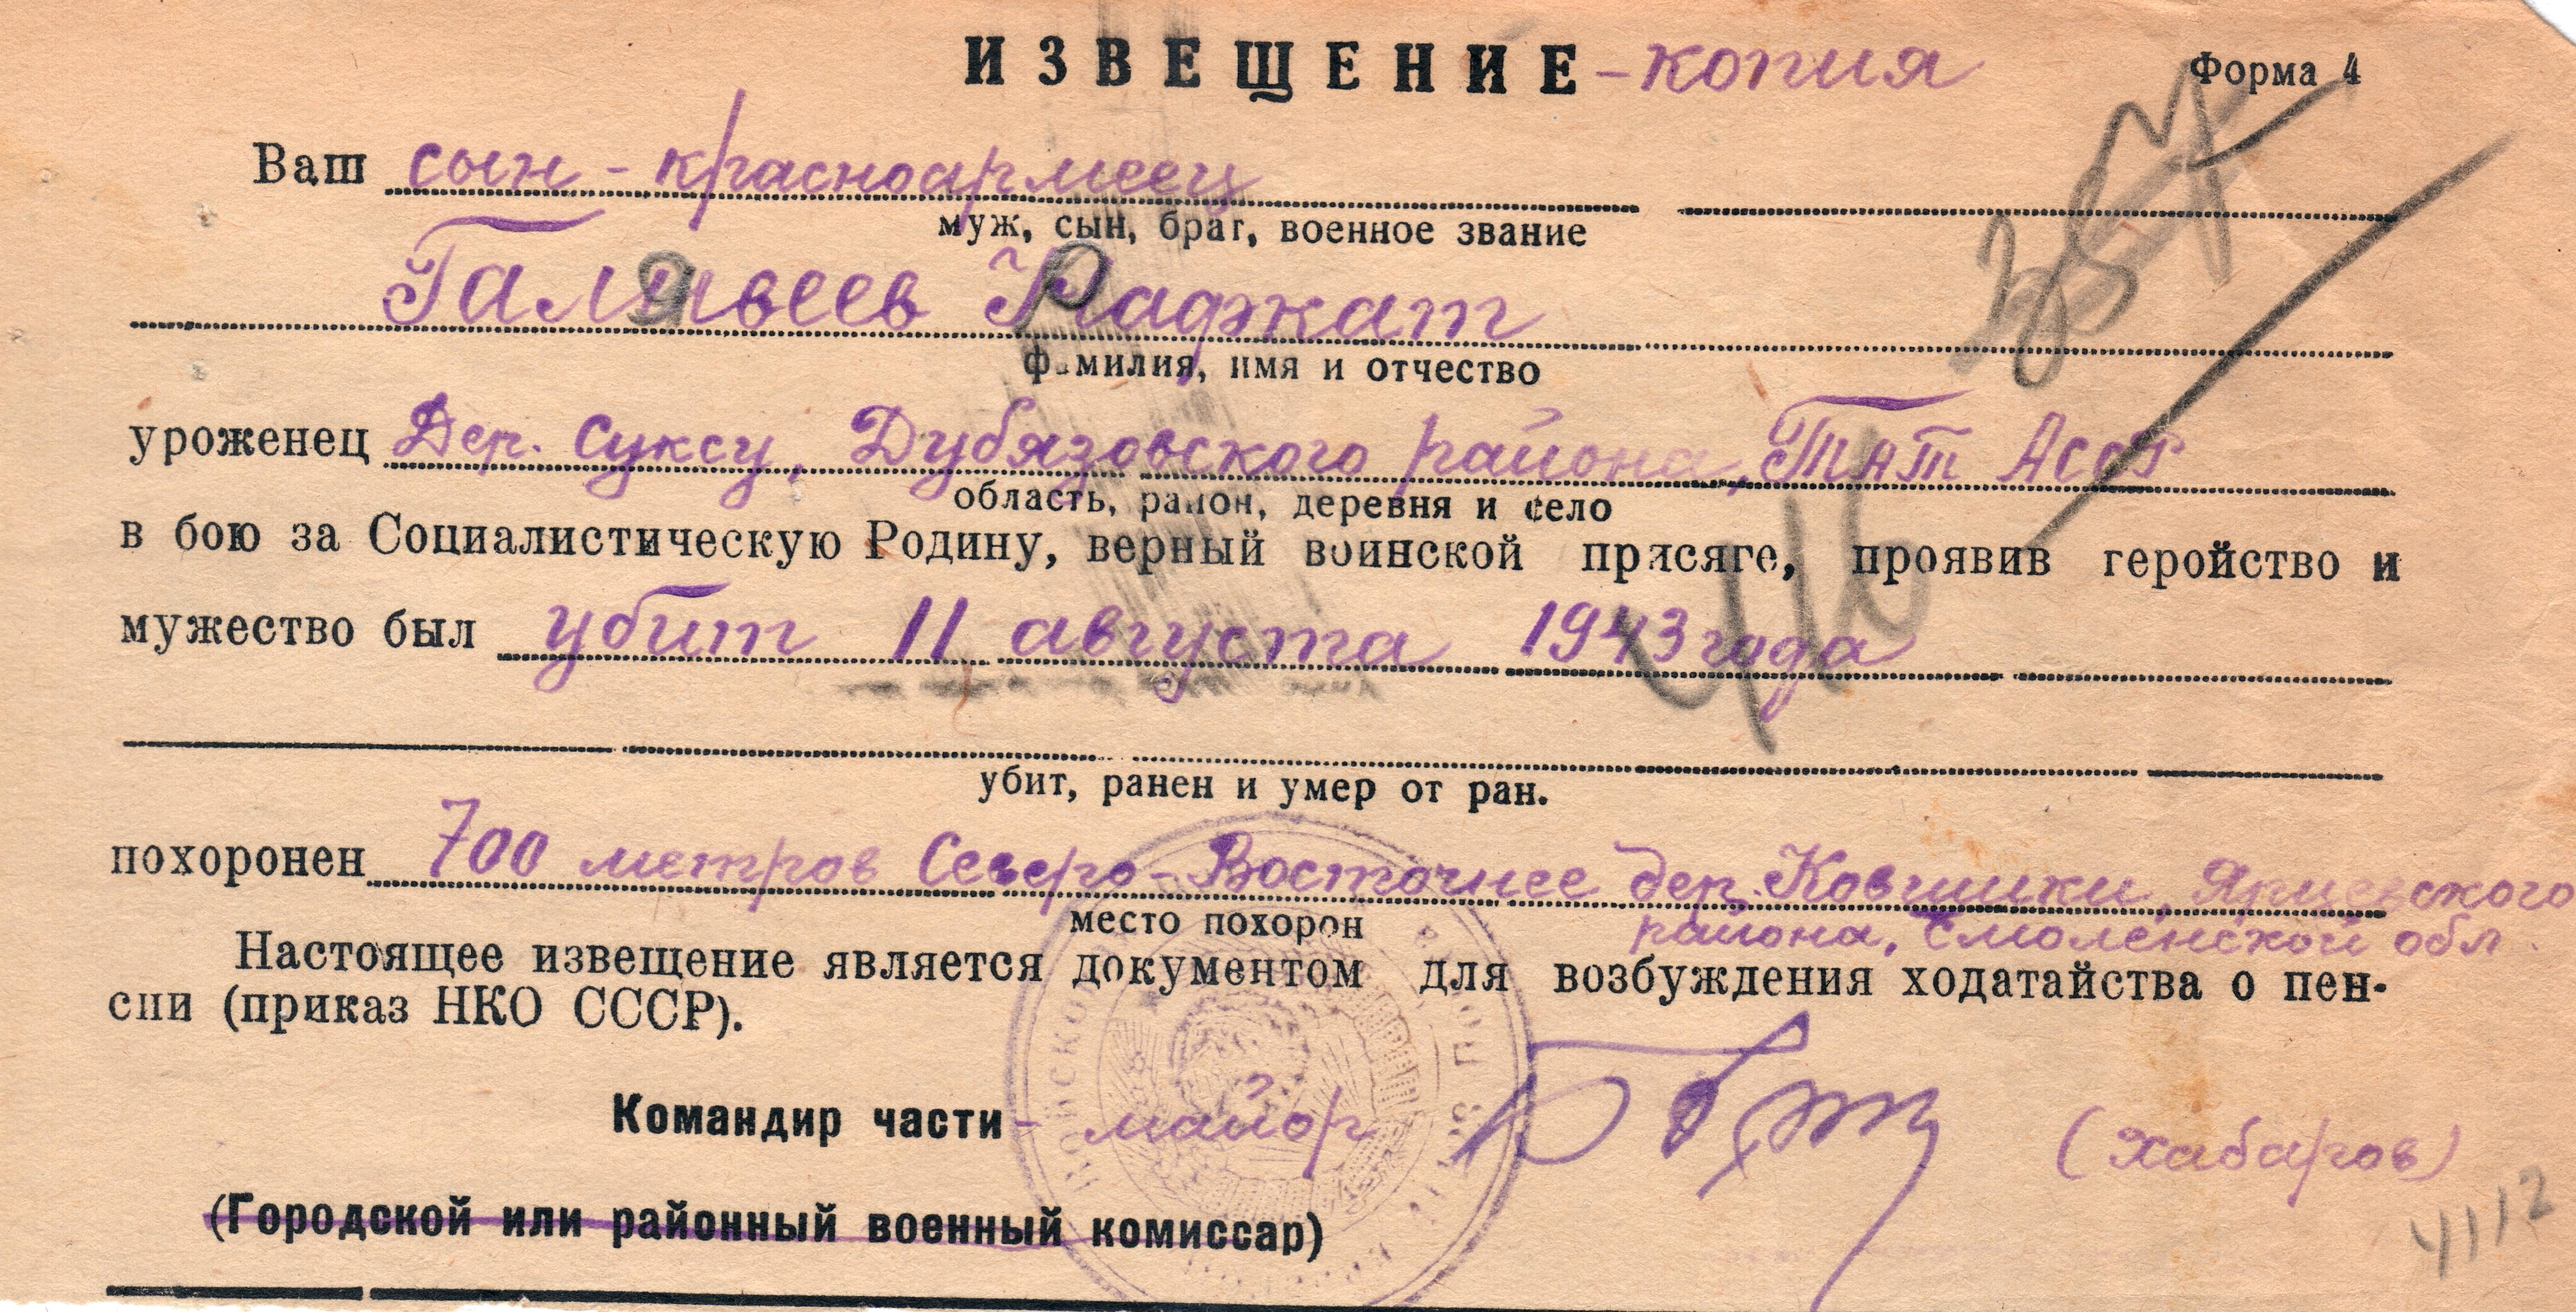 ИЗВЕЩЕНИЕ - копия
Форма 4
Ваш сын - красноармеец
муж, сын, брат, военное звание
Галявеев Рафкат
фамилия, имя и отчество
уроженец Дер. Суксу, Дубязовского района, ТАТ АССР
область, район, деревня и село
в бою за Социалистическую Родину, верный воинской присяге, проявив геройство и
мужество был убит 11 августа 1943 года
убит, ранен и умер от ран.
похоронен 700 метров Северо-Восточнее дер. Ковшики, Ярцевского
место похорон
района, Смоленской обл.
Настоящее извещение является документом для возбуждения ходатайства о пен-
сии (приказ НКО СССР).
Командир части - майор (Хабаров)
(Городской или районный военный комиссар)
4112